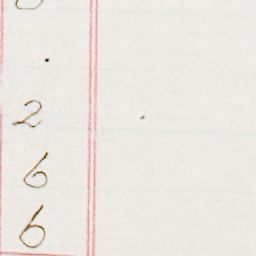 .
2
6
6